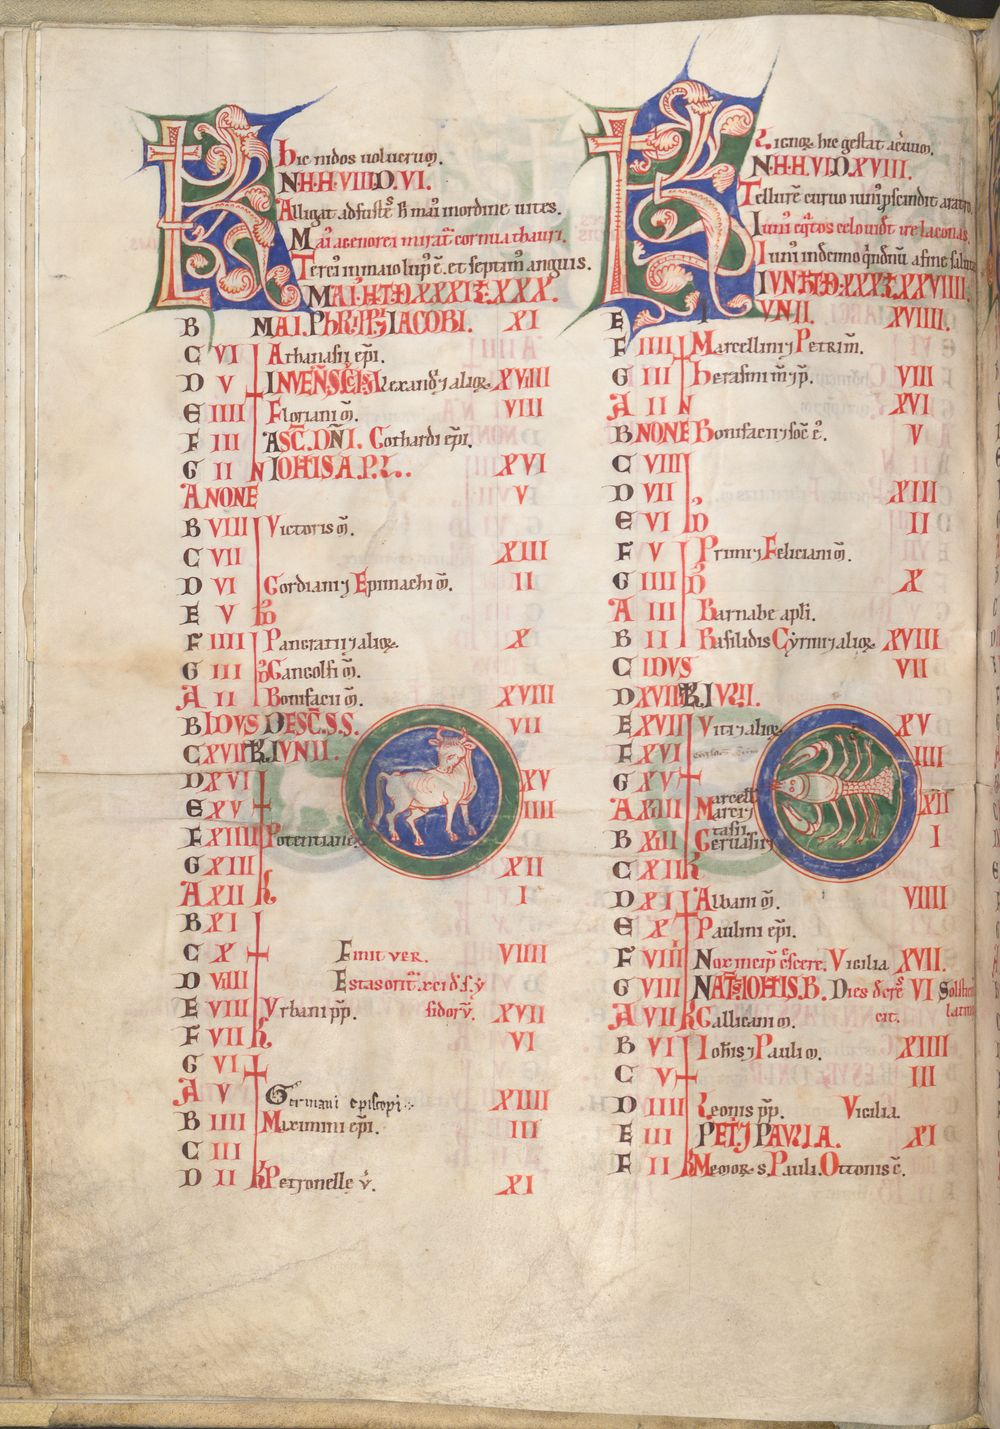 KL hic nidos uoluerum.
N.H.H.VIII.D.VI.
Alligat ad fuste
Mai
Tercius in maio lupus est. et septimus anguis.
MAI.H.T.D.XXXI.L.XXX.
B MAI. PhILIPI 7 IACOBI. XI
C VI Athanasii epi.
D V INVEN. S. CRUCIS. Alexandri 7 alioꝝ XVIIII
E IIII Floriani m. VIII
F III ASC. DNI. Gothardi epi.
G II N IOHIS A.P.L. XVI
A NONE V
B VIII Victoris m.
C VII XIII
D VI Gordiani 7 Epimachi m. II
E V
F IIII Pancratii 7 alioꝝ X
G III Gangolfi m.
A II Bonifacii m. XVIII
B IDVS DESC. S. S. VII
C XVII KL IVNII.
D XVI XV
E XV IIII
F XIIII Potentiane
G XIII XII
A XII K I
B XI
C X Finit ver. VIIII
D VIIII Estas oritur
E VIII Vrbani pp. sidorum. XVII
F VII K VI
G VI
A V Germani episcopi XIIII
B IIII Maximini epi. III
C III
D II K Petronelle v. XI
KL hic gestat
N.H.H.VI.D.XVIII.
Tellurem curuo iunius pscindit aratro
Iunius
Iunii in deno
IVN.H.T.D.XXX.L.XXVIIII.
E IVNII. XVIIII.
F IIII Marcellini 7 Petri m.
G III herasmi m 7 p. VIII
A II N XVI
B NONE Bonifacii 7 soc e. V
C VIII
D VII XIII
E VI II
F V Primi 7 Feliciani m.
G IIII X
A III Barnabe apli.
B II Basilidis Cyrini 7 alioꝝ XVIII
C IDVS VII
D XVIII KL IVLII.
E XVII Viti 7 alioꝝ XV
F XVI IIII
G XV
A XIIII Marcelli Marci 7 XII
B XIII Geruasii 7 I
C XII K
D XI Albani m. VIIII
E X Paulini epi.
F VIIII Nox incip crescere. Vigilia XVII.
G VIII NAT. S. IOHIS. B. Dies decres VI Solsticium
A VII K Gallicani m. cit.
B VI Iohis 7 Pauli m. XIIII
C V III
D IIII Leonis pp. Vigilia.
E III PETI 7 PAVLI A. XI
F II K Memor. s. Pauli. Ottonis e.